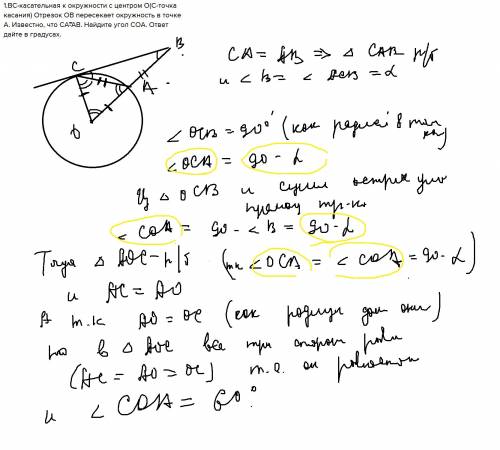 1.BC-касательная к окружности с центром O(С-точка
касания) Отрезок ОВ пересекает окружность в точке
А. Известно, что СА=АВ. Найдите угол СОА. Ответ
дайте в градусах.
C
B
A
O
CA = AB ⇒ △ CAB р/б
и ∠B = ∠ACB = α
∠OCB = 90° (как радиус в
∠OCA = 90 - α
Из △ OCB и сумма острых
прямоуг тр-ка
∠COA = 90 - ∠B = 90 - α
Тогда △ AOC - р/б (тк ∠OCA = ∠COA = 90 - α)
и AC = AO
А т.к AO = OC (как радиусы
то в △ AOC все три стороны равны
(AC = AO = OC) т.е. он
и ∠COA = 60°.